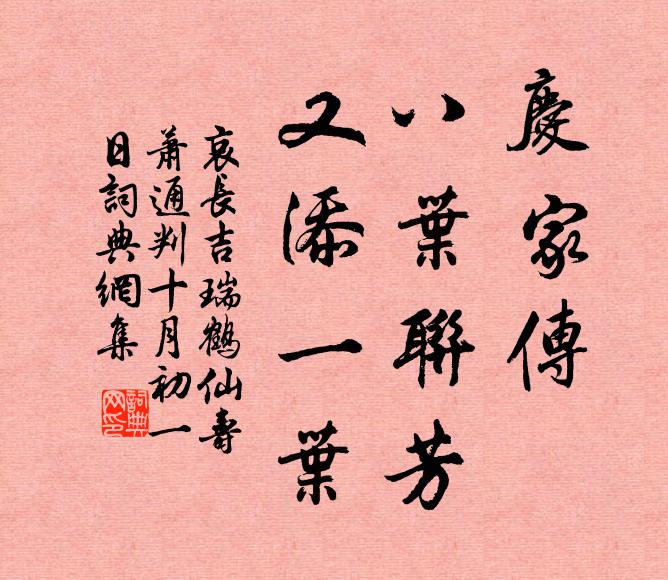 慶家傳
八葉聯芳
又添一葉
哀長吉瑞鶴仙壽
蕭通判十月初一
日詞典網集
詞典网印